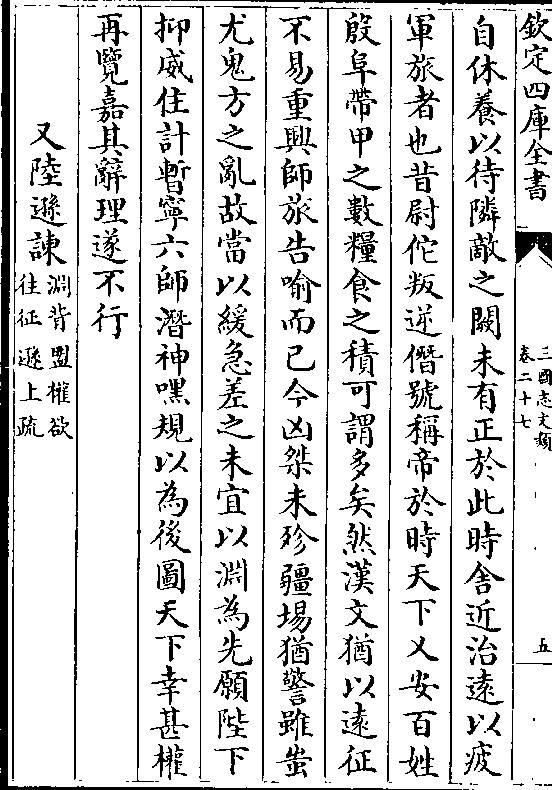 欽定四庫全書
三國志文類
卷二十七
五
自休養以待隣敵之闕未有正於此時舎近治遠以疲
軍旅者也昔尉佗叛逆僭號稱帝於時天下乂安百姓
殷阜帶甲之數糧食之積可謂多矣然漢文猶以遠征
不易重興師旅告喻而已今凶桀未殄疆埸猶警雖蚩
尤鬼方之亂故當以緩急差之未宜以淵為先願陛下
抑威住計暫寧六師潛神嘿規以為後圖天下幸甚權
再覽嘉其辭理遂不行
又陸遜諫淵背盟權欲
往征遜上疏